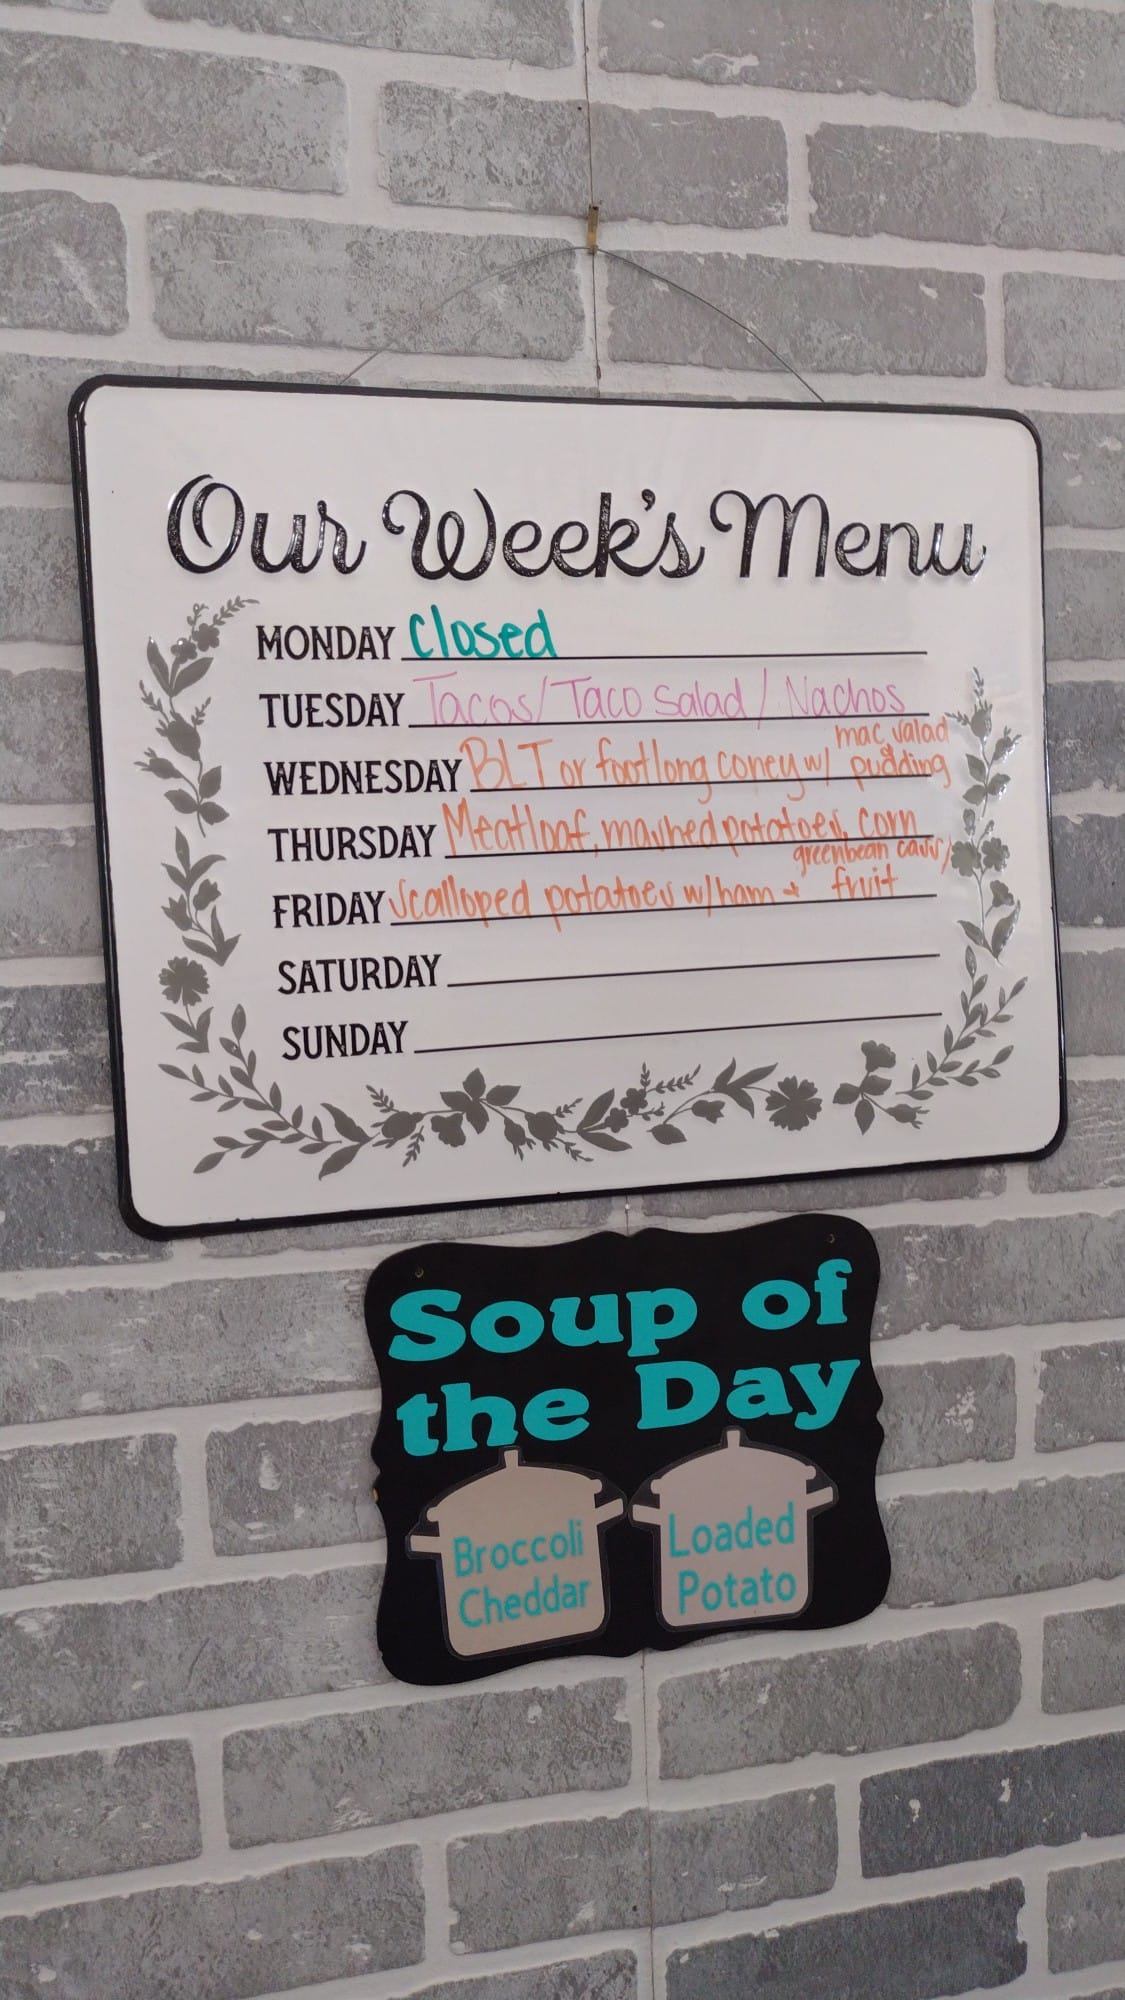 Our Week's Menu
MONDAY Closed
TUESDAY Tacos/Taco Salad/Nachos
WEDNESDAY BLT or footlong coney w/ mac salad & pudding
THURSDAY Meatloaf, mashed potatoes, corn
FRIDAY Scalloped potatoes w/ham + greenbean cass/ fruit
SATURDAY
SUNDAY
Soup of
the Day
Broccoli
Cheddar
Loaded
Potato